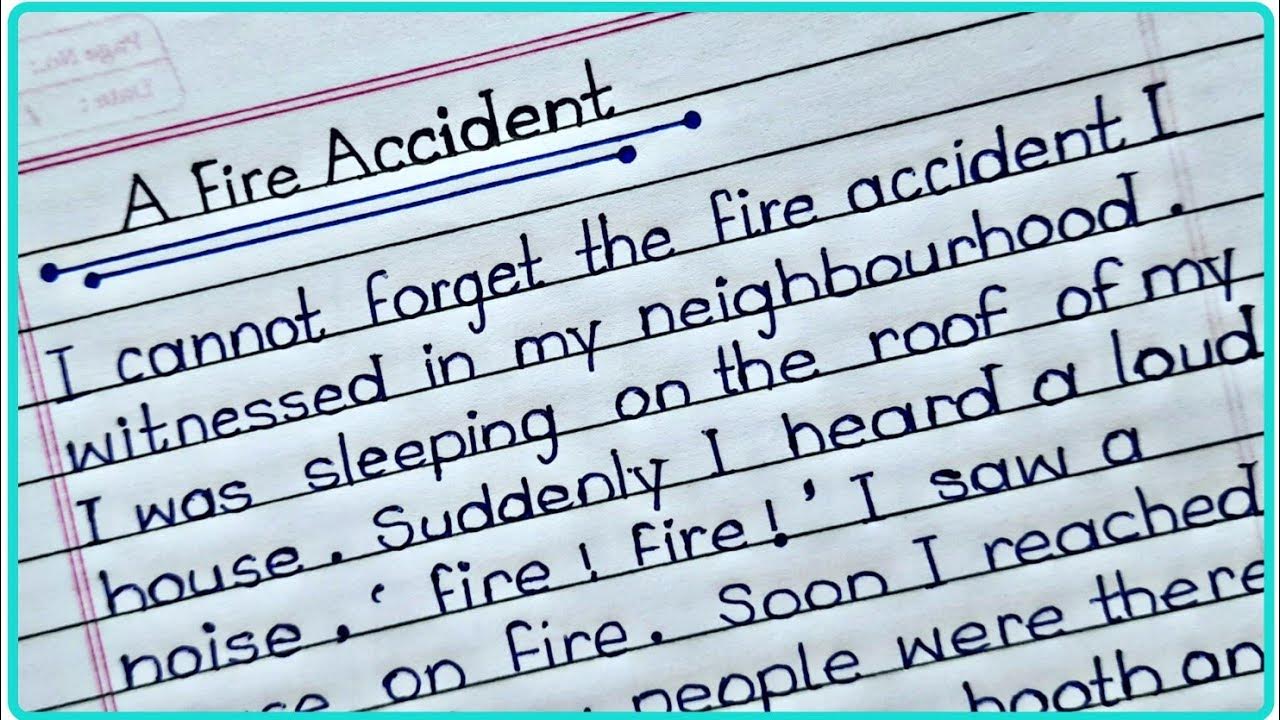 Page No.:
Date:
A Fire Accident
I cannot forget the fire accident I
witnessed in my neighbourhood.
I was sleeping on the roof of my
house. Suddenly I heard a loud
noise. ‘ fire! Fire!’ I saw a
on fire. Soon I reached
people were there
booth on